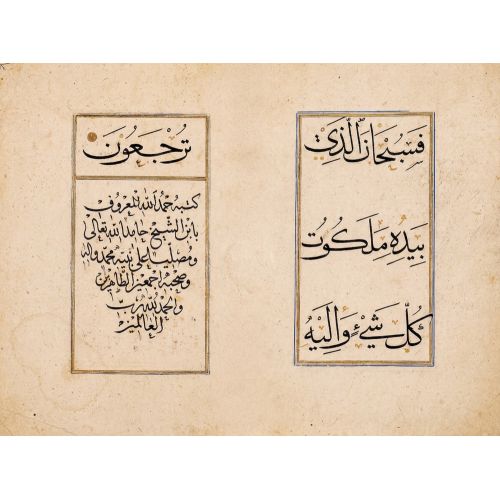 فَسُبْحَانَ الَّذِي
بِيَدِهِ مَلَكُوتُ
كُلِّ شَيْءٍ وَإِلَيْهِ
تُرْجَعُونَ
كتبه حمد الله المعروف
بابن الشيخ حامدا لله تعالى
ومصليا على نبيه محمد وآله
وصحبه أجمعين الطاهرين
والحمد لله رب
العالمين